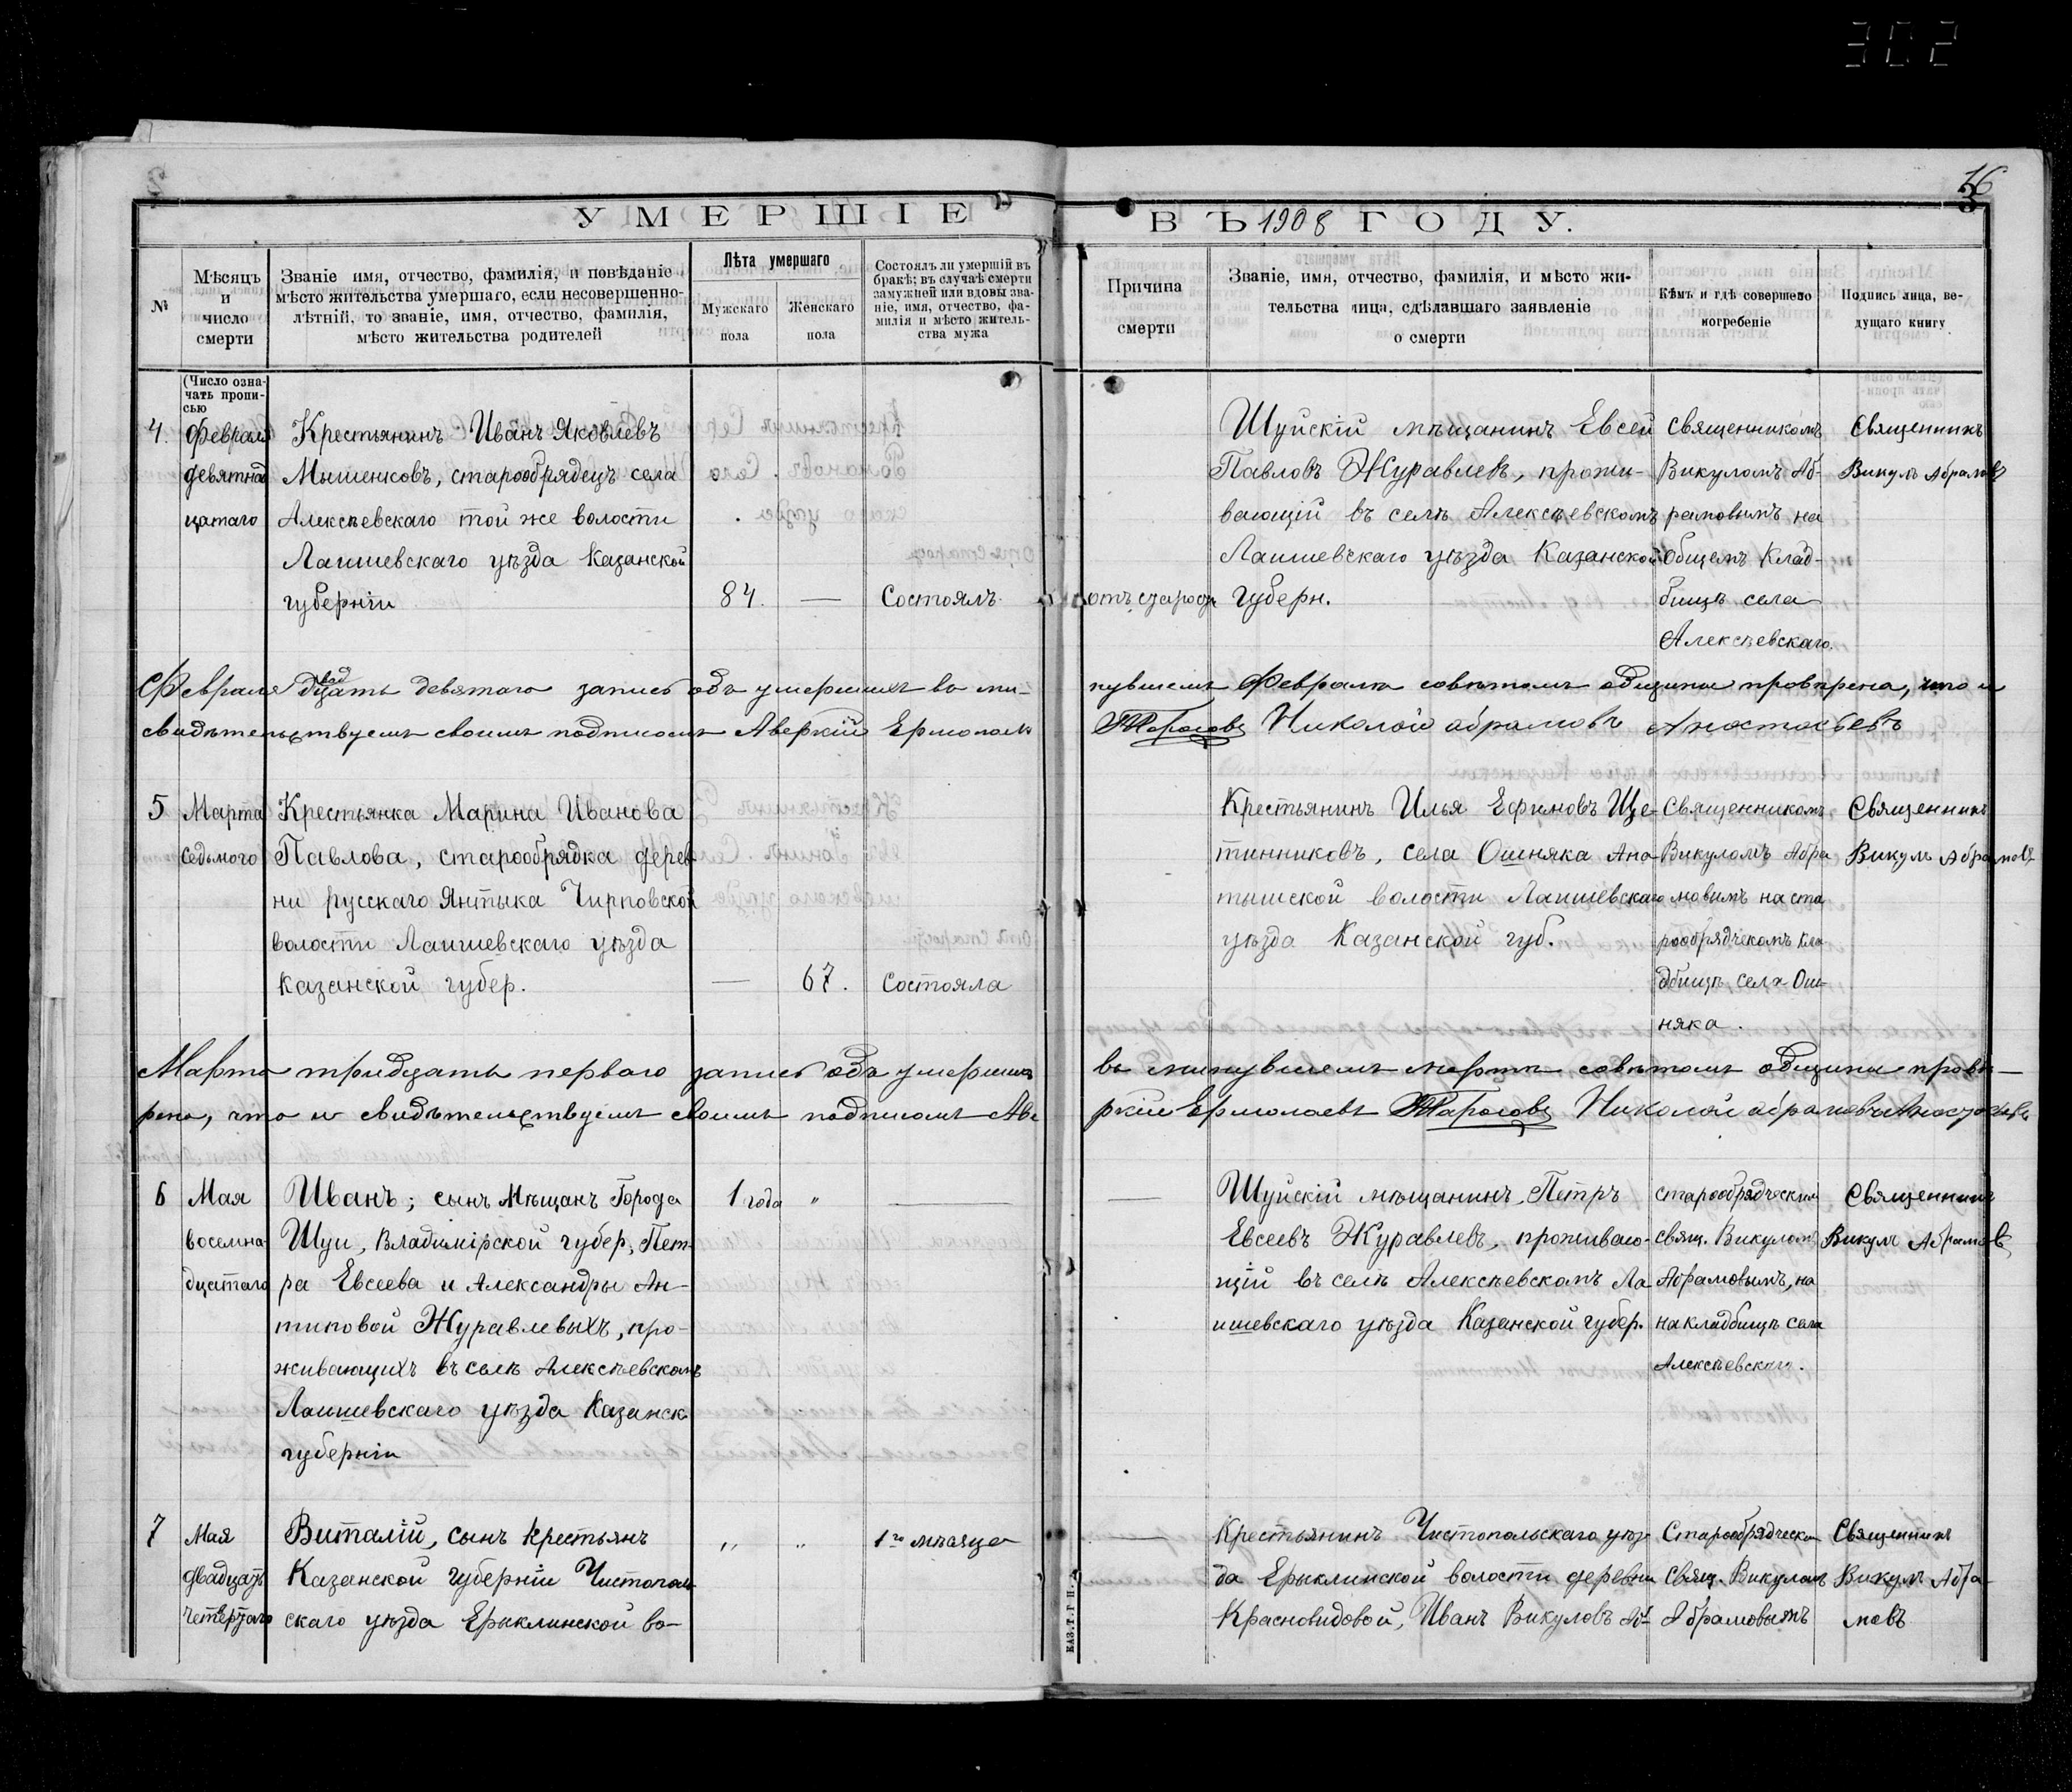 302
16
3
УМЕРШІЕ
ВЪ 1908 ГОДУ.
№
Мѣсяцъ
и
число
смерти
Званіе имя, отчество, фамилія, и повѣданіе
мѣсто жительства умершаго, если несовершенно-
лѣтній, то званіе, имя, отчество, фамилія,
мѣсто жительства родителей
Лѣта умершаго
Мужскаго
пола
Женскаго
пола
Состоялъ ли умершій въ
бракѣ; въ случаѣ смерти
замужней или вдовы зва-
ніе, имя, отчество, фа-
милія и мѣсто житель-
ства мужа
Причина
смерти
Званіе, имя, отчество, фамилія, и мѣсто жи-
тельства лица, сдѣлавшаго заявленіе
о смерти
Кѣмъ и гдѣ совершено
погребеніе
Подпись лица, ве-
дущаго книгу
(Число озна-
чать пропи-
сью
4.
Февраля
девятнад
цатаго
Крестьянинъ Иванъ Яковлевъ
Мышенковъ, старообрядецъ села
Алексѣевскаго той же волости
Лаишевскаго уѣзда Казанской
губерніи
84.
—
Состоялъ
отъ старости
Шуйскій мѣщанинъ Евсей
Павловъ Журавлевъ, прожи-
вающій въ селѣ Алексѣевскомъ
Лаишевскаго уѣзда Казанской
Губерн.
Священникомъ
Викуломъ Аб-
рамовымъ на
общемъ Клад-
бищѣ села
Алексѣевскаго.
Священникъ
Викулъ Абрамовъ
Февраля двадцать девятаго запись объ умершихъ въ ми-
нувшемъ Февралѣ совѣтомъ общины провѣрена, что и
свидѣтельствуемъ своимъ подписомъ Аверкій Ермолаевъ
Тарасовъ Николай абрамовъ Анастасьевъ
5
Марта
седьмого
Крестьянка Марина Иванова
Павлова, старообрядка дерев
ни русскаго Янтыка Чирповской
волости Лаишевскаго уѣзда
Казанской губер.
—
67.
Состояла
Крестьянинъ Илья Ефимовъ Ще-
тинниковъ, села Ошняка Ана
тышской волости Лаишевскаго
уѣзда Казанской губ.
Священникомъ
Викуломъ Абра
мовымъ на ста
рообрядческомъ кла
дбищѣ, села Ош-
няка.
Священникъ
Викулъ Абрамовъ
Марта тридцать перваго запись объ умершихъ
въ минувшемъ мартѣ совѣтомъ общины провѣ-
рена, что и свидѣтельствуемъ своимъ подписомъ Аве
ркій Ермолаевъ Тарасовъ Николай абрамовъ Анастасьевъ
6
Мая
восемна
дцатаго
Иванъ; сынъ Мѣщанъ Города
Шуи, Владимірской губер, Пет-
ра Евсеева и Александры Ан-
типовой Журавлевыхъ, про-
живающихъ въ селѣ Алексѣевскомъ
Лаишевскаго уѣзда Казанск
губерніи
1 года
"
—
—
Шуйскій мѣщанинъ, Петръ
Евсеевъ Журавлевъ, проживаю-
щій въ селѣ Алексѣевскомъ Ла
ишевскаго уѣзда Казанской губер.
старообрядческим
свящ. Викуломъ
Абрамовымъ, на
на кладбищѣ села
Алексѣевскаго.
Священникъ
Викулъ Абрамовъ
7
Мая
двадцать
четвертаго
Виталій, сынъ крестьянъ
Казанской губерніи Чистополь
скаго уѣзда Ерыклинской во-
"
"
1го мѣсяца
—
Крестьянинъ Чистопольскаго уѣз-
да Ерыклинской волости деревни
Красновидовой, Иванъ Викуловъ Аб
Старообрядческим
свящ. Викуломъ
Абрамовымъ
Священникъ
Викулъ Абра-
мовъ
КАЗ. Т. Г. П.